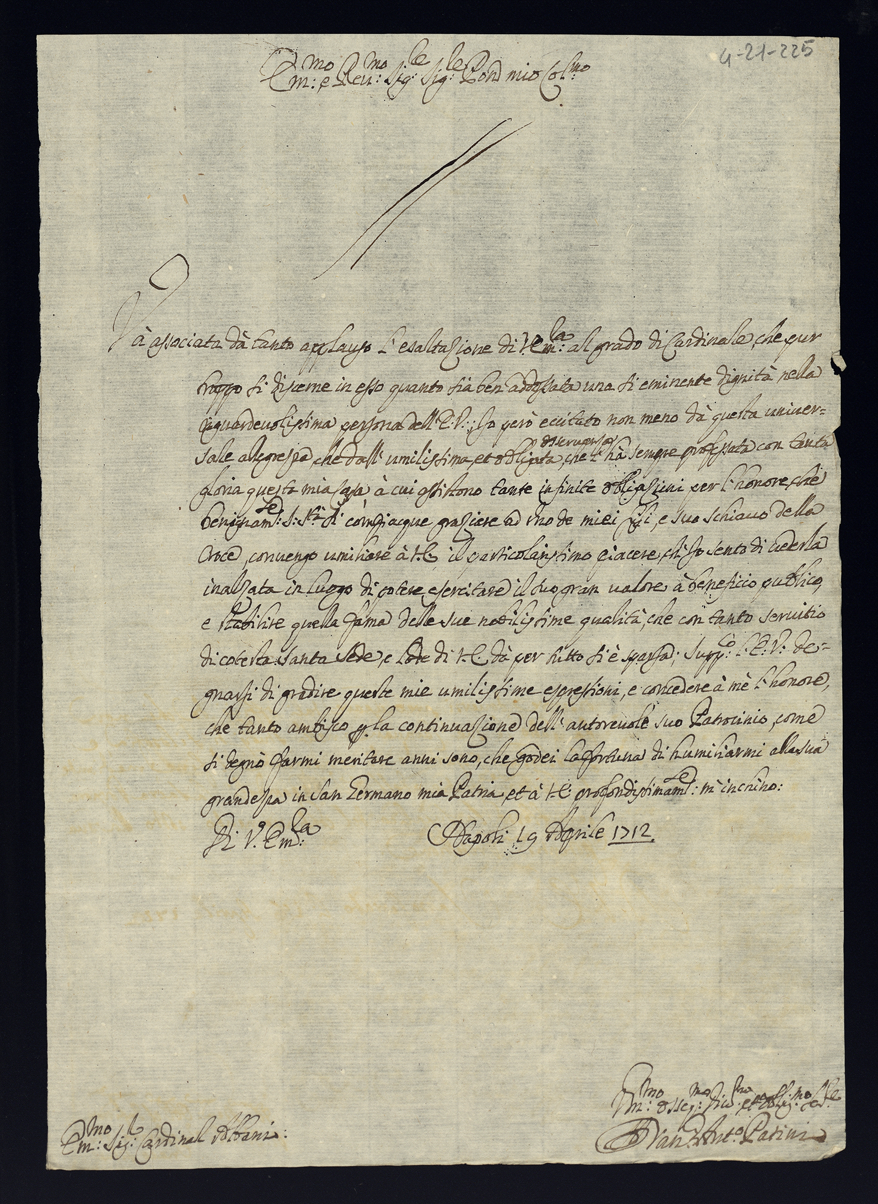 4-21-225
Em:mo e Reu:mo Sig:re Sig:re Pron mio Col:mo
Và associata dà tanto applauso l'esaltazione di V. Em:za al grado di Cardinale, che pur
troppo si discerne in esso quanto sia ben addossata una si eminente dignità nella
riguardevolissima persona dell'E.V.; Io però eccitato non meno dà questa univer=
sale allegrezza, che dall'umilissima, et obligata osservanza, che l'hà sempre professata con tanta
gloria questa mia Casa à cui assistono tante infinite obligazioni per l'honore, che
benignam:te S. S:tà si compiacque graziare ad uno de miei figli, e suo schiavo della
Croce, convengo umiliare à V.E. il particolarissimo piacere, ch'Io sento di vederla
inalzata in luogo di potere esercitare il suo gran valore à beneficio publico,
e stabilire quella fama delle sue nobilissime qualità, che con tanto servitio
di cotesta santa sede, e lode di V.E. dà per tutto si è sparsa; Supp:co l'E.V. de=
gnarsi di gradire queste mie umilissime espressioni, e concedere à mè l'honore,
che tanto ambisco p la continuazione dell'autorevole suo Patrocinio, come
si degnò farmi meritare anni sono, che godei la fortuna di humiliarmi alla sua
grandezza in San Germano mia Patria, et à V.E. profondissimam:te m'inchino:
Di V. Em:za
Napoli 19 Aprile 1712.
Em:mo Sig:r Cardinal Albani:
Um:mo et oblig:mo
Ant:o Patini